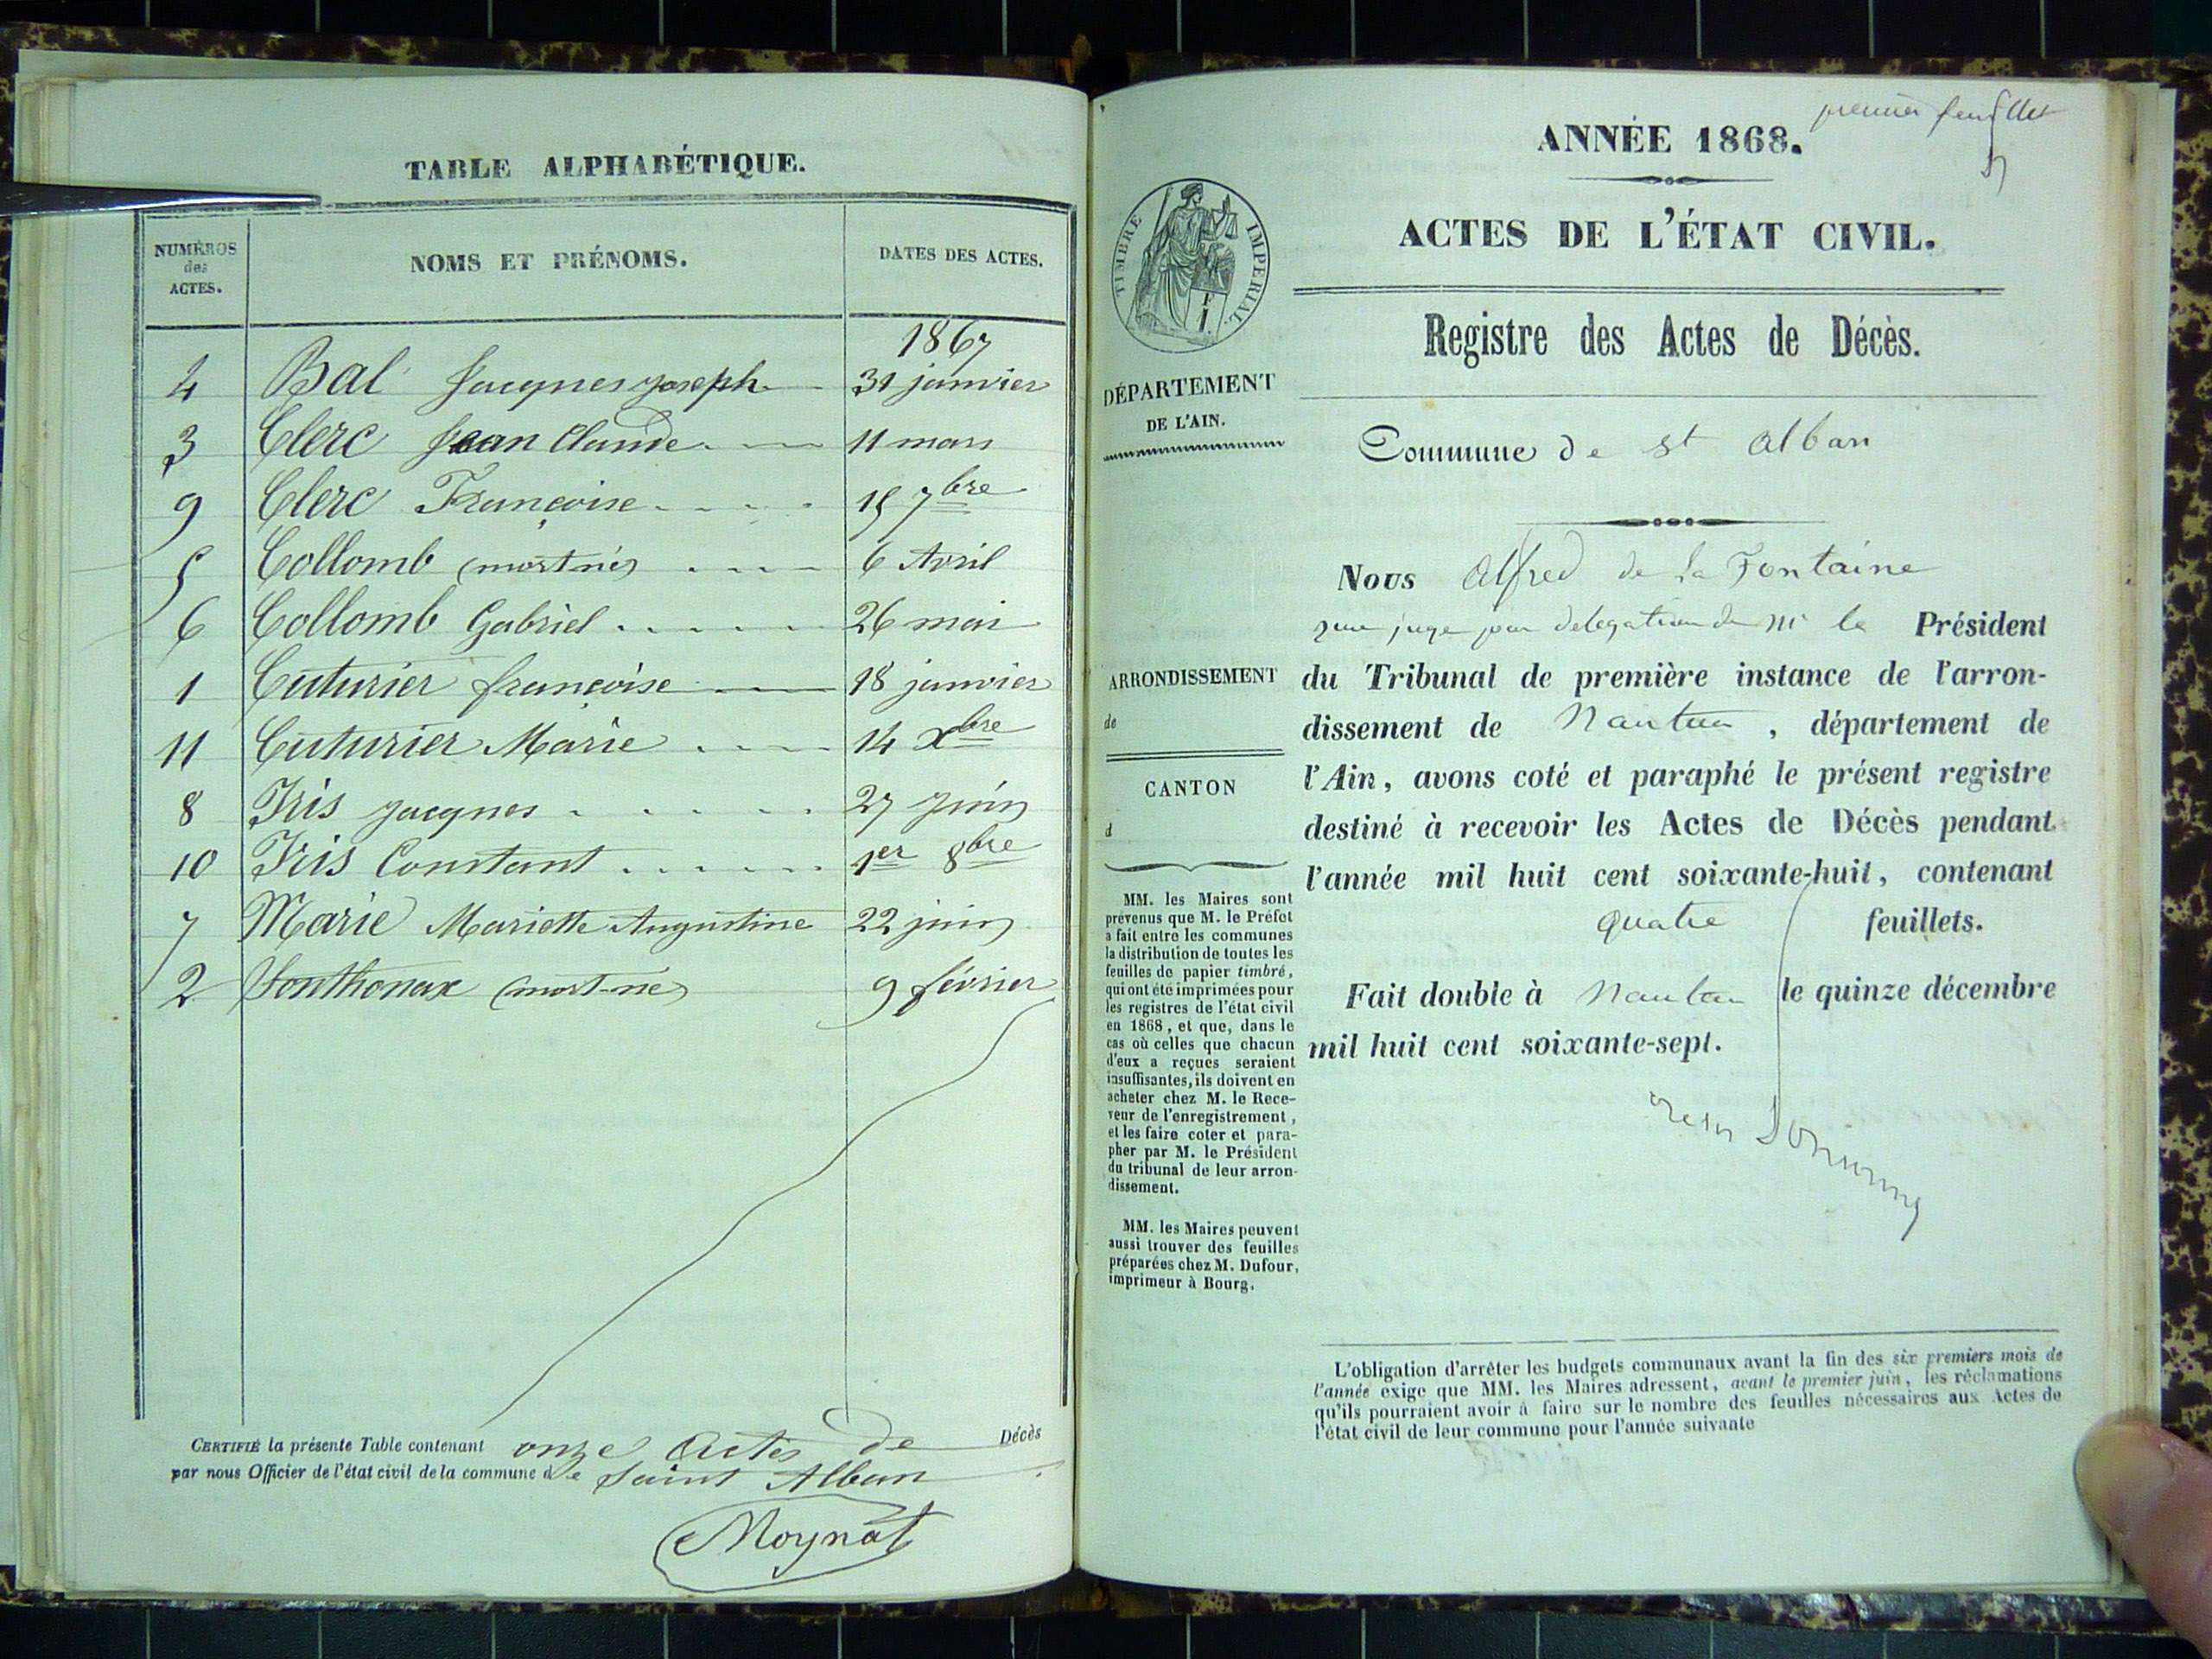 TABLE ALPHABÉTIQUE.
NUMÉROS
des
ACTES.
NOMS ET PRÉNOMS.
DATES DES ACTES.
1867
4 Bal Jacques joseph 31 janvier
3 Clerc Jean Claude 11 mars
9 Clerc Françoise 15 7bre
5 Collomb (mort né) 6 Avril
6 Collomb Gabriel 26 mai
1 Cuturier françoise 18 janvier
11 Cuturier Marie 14 Xbre
8 Iris jacques 27 juin
10 Iris Constant 1er 8bre
7 Marie Mariette Augustine 22 juin
2 Sonthonax (mort-né) 9 février
CERTIFIÉ la présente Table contenant onze Actes de Décès
par nous Officier de l'état civil de la commune de Saint Alban
Moynat
premier feuillet
ANNÉE 1868.
ACTES DE L'ÉTAT CIVIL.
TIMBRE IMPÉRIAL.
Registre des Actes de Décès.
DÉPARTEMENT
DE L'AIN.
Commune de St Alban
Nous Alfred de la Fontaine
juge par délégation de Mr le Président
du Tribunal de première instance de l'arron-
dissement de Nantua, département de
l'Ain, avons coté et paraphé le présent registre
destiné à recevoir les Actes de Décès pendant
l'année mil huit cent soixante-huit, contenant
quatre feuillets.
Fait double à Nantua le quinze décembre
mil huit cent soixante-sept.
ARRONDISSEMENT
de
CANTON
d
MM. les Maires sont
prévenus que M. le Préfet
a fait entre les communes
la distribution de toutes les
feuilles de papier timbré,
qui ont été imprimées pour
les registres de l'état civil
en 1868, et que, dans le
cas où celles que chacun
d'eux a reçues seraient
insuffisantes, ils doivent en
acheter chez M. le Rece-
veur de l'enregistrement,
et les faire coter et para-
pher par M. le Président
du tribunal de leur arron-
dissement.
MM. les Maires peuvent
aussi trouver des feuilles
préparées chez M. Dufour,
imprimeur à Bourg.
L'obligation d'arrêter les budgets communaux avant la fin des six premiers mois de
l'année exige que MM. les Maires adressent, avant le premier juin, les réclamations
qu'ils pourraient avoir à faire sur le nombre des feuilles nécessaires aux Actes de
l'état civil de leur commune pour l'année suivante